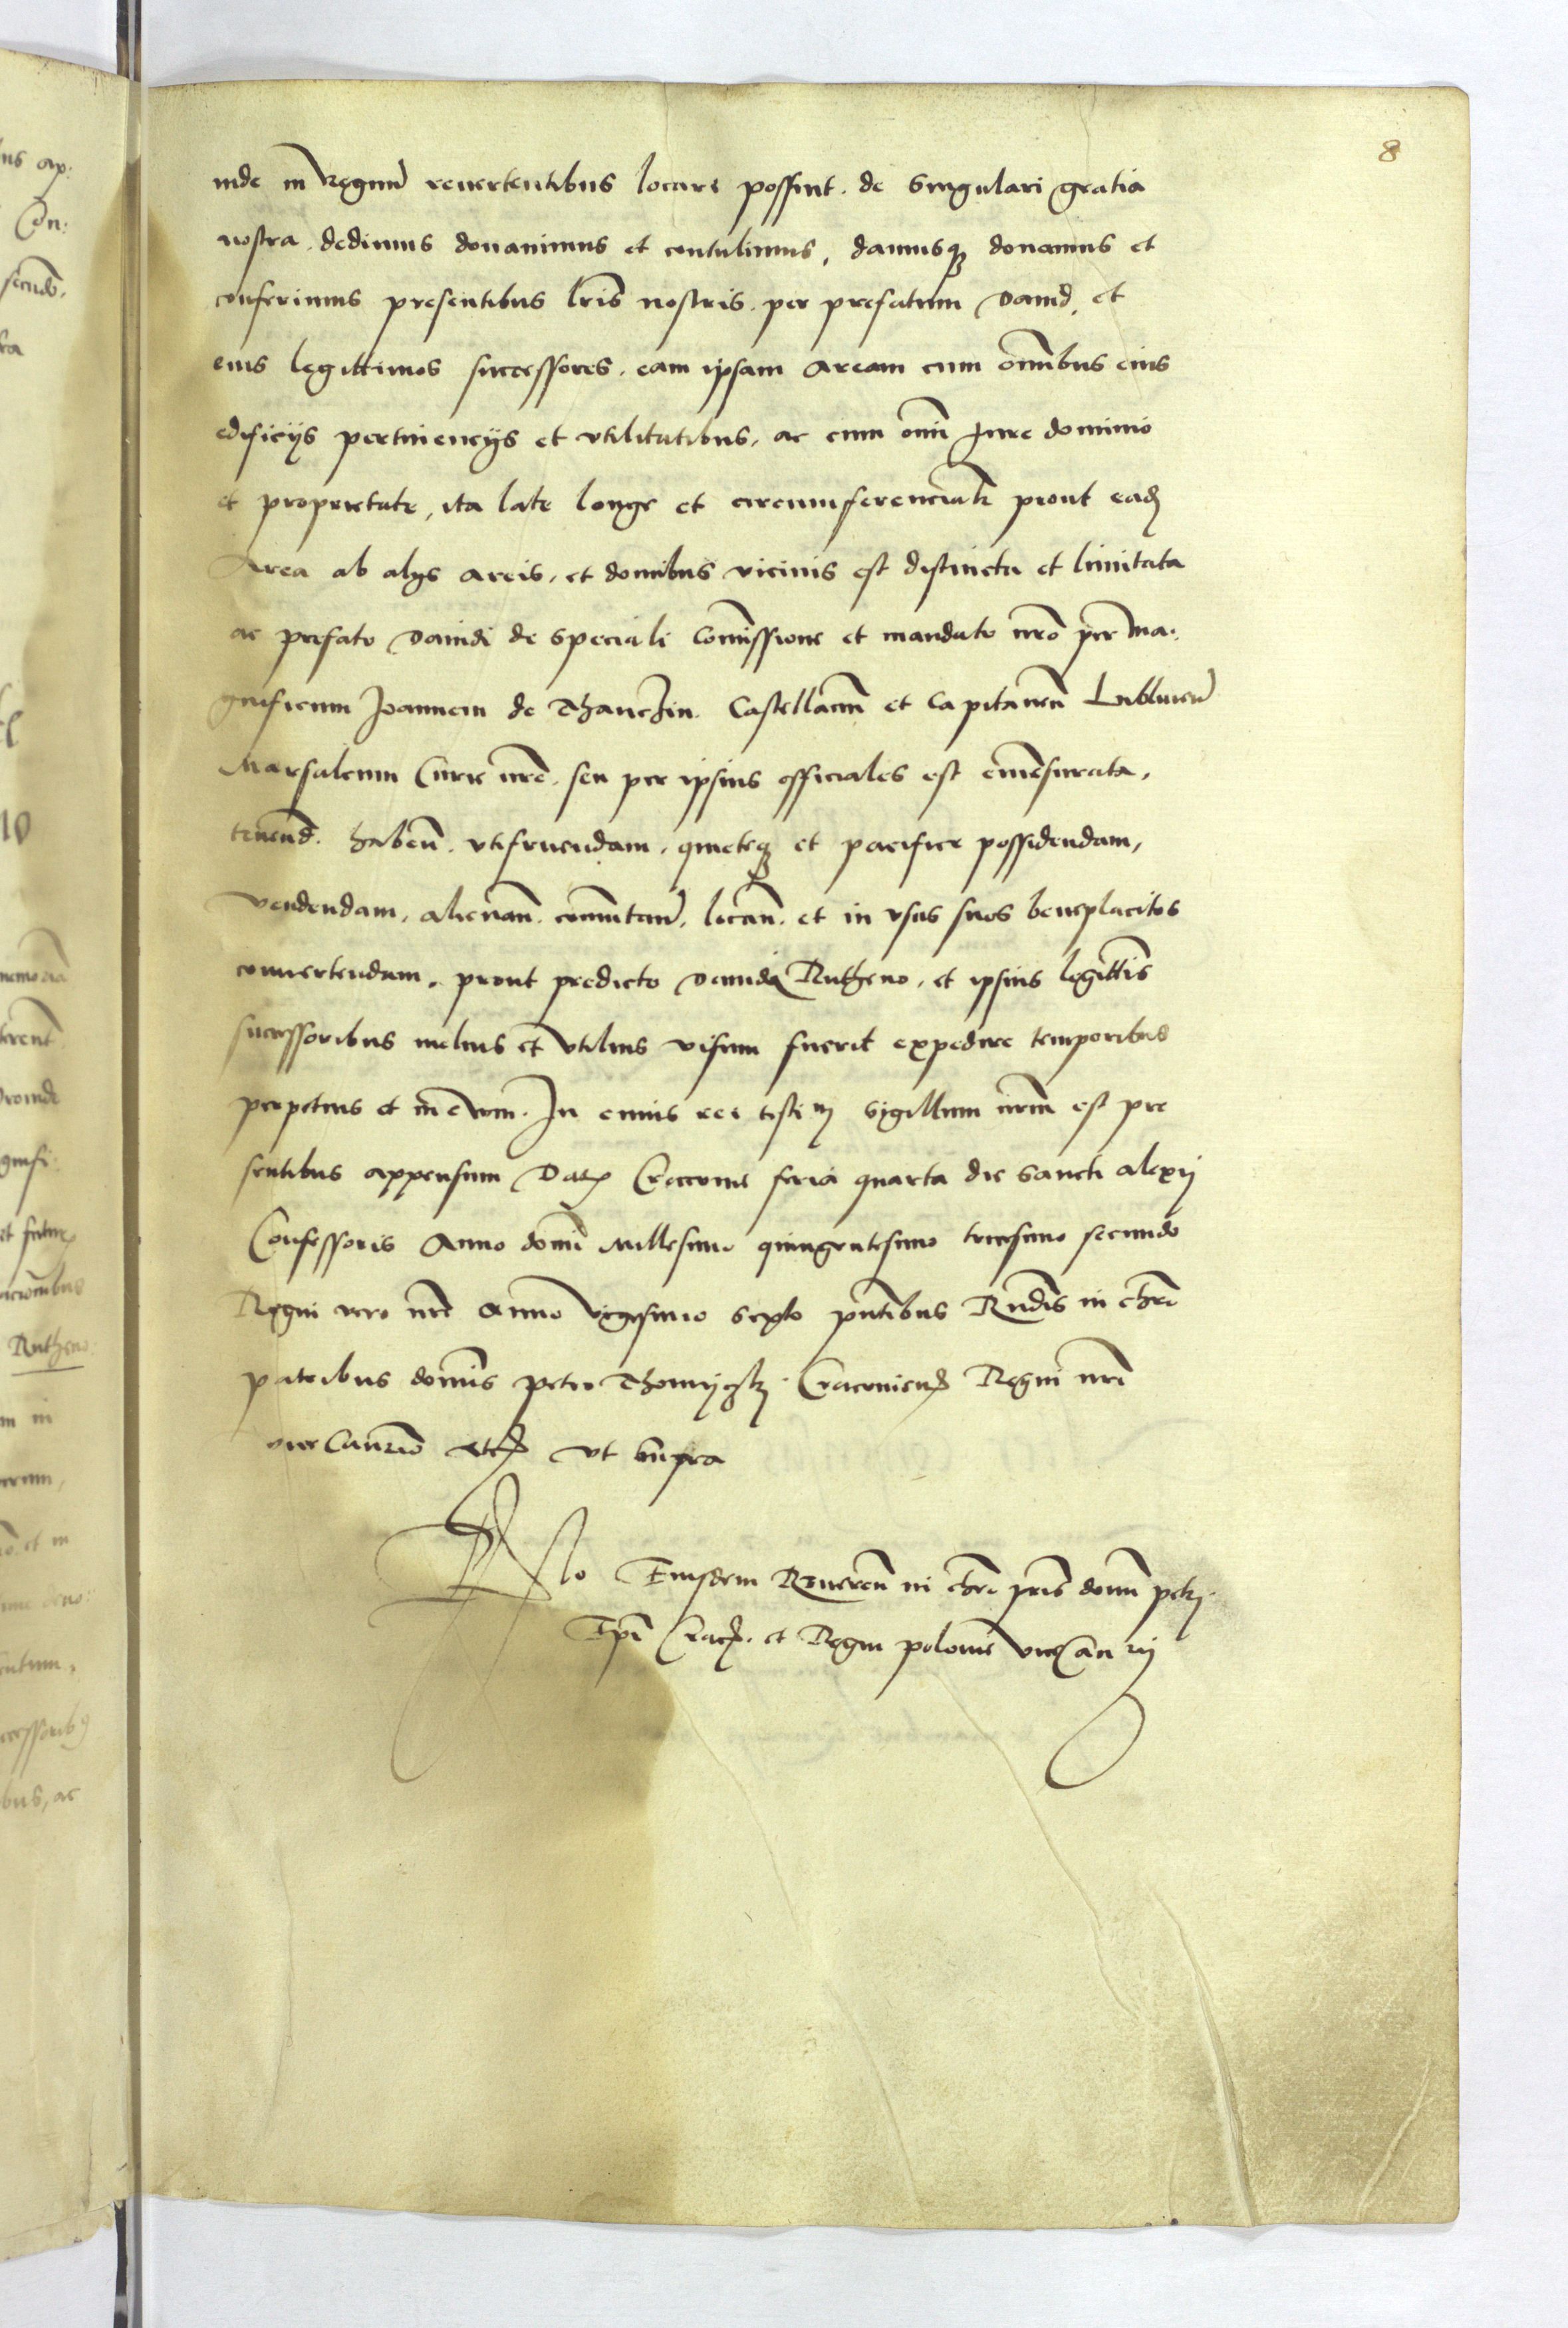 8
inde in Regnũ reuertentibus locari possint. de singulari gratia
nostra. dedimus donauimus et contulimus, damusq donamus et
conferimus presentibus lris nostris. per prefatum Dauid, et
eius legittimos successores. eam ipsam aream cum oĩnibus eius
edificijs pertinencijs et vtilitatibus, ac cum omĩ Jure dominio
et proprietate, ita late longe et circumferencialr prout ead
Area ab alijs areis, et domibus vicinis est distincta et limitata
ac prefato Dauidi de speciali Comissione et mandato nro per Ma:
gnificum Joannem de Thanczin. Castellanũ et Capitaneũ Lublinen
Marsalcum Curie nre. seu per ipsius officiales est emẽsurata,
tenend. haben. vtifruendam, quieteq et pacifice possidendam,
Vendendam, alienan. comutan, locan. et in vsus suos beneplacitos
conuertendam, prout predicto Dauidi Rutheno, et ipsius legittĩs
successoribus melius et vtilius visum fuerit expedire temporibus
perpetuis et in euum. In cuius rei testim sigillum nrm est pre
sentibus appensum Dat Cracouie feria quarta die sancti alexij
Confessoris Anno domi Millesimo quingentesimo tricesimo secundo
Regni vero nri Anno vigesimo sexto pntibus Rndis in chro
patribus domis petro Thomijczki. Cracouien Regni nri
vice Cancrio etc vt supra
Rlo Eiusdem Reueren in chro pris domi petri
Epi Crac. et Regni polonie viceCan rij